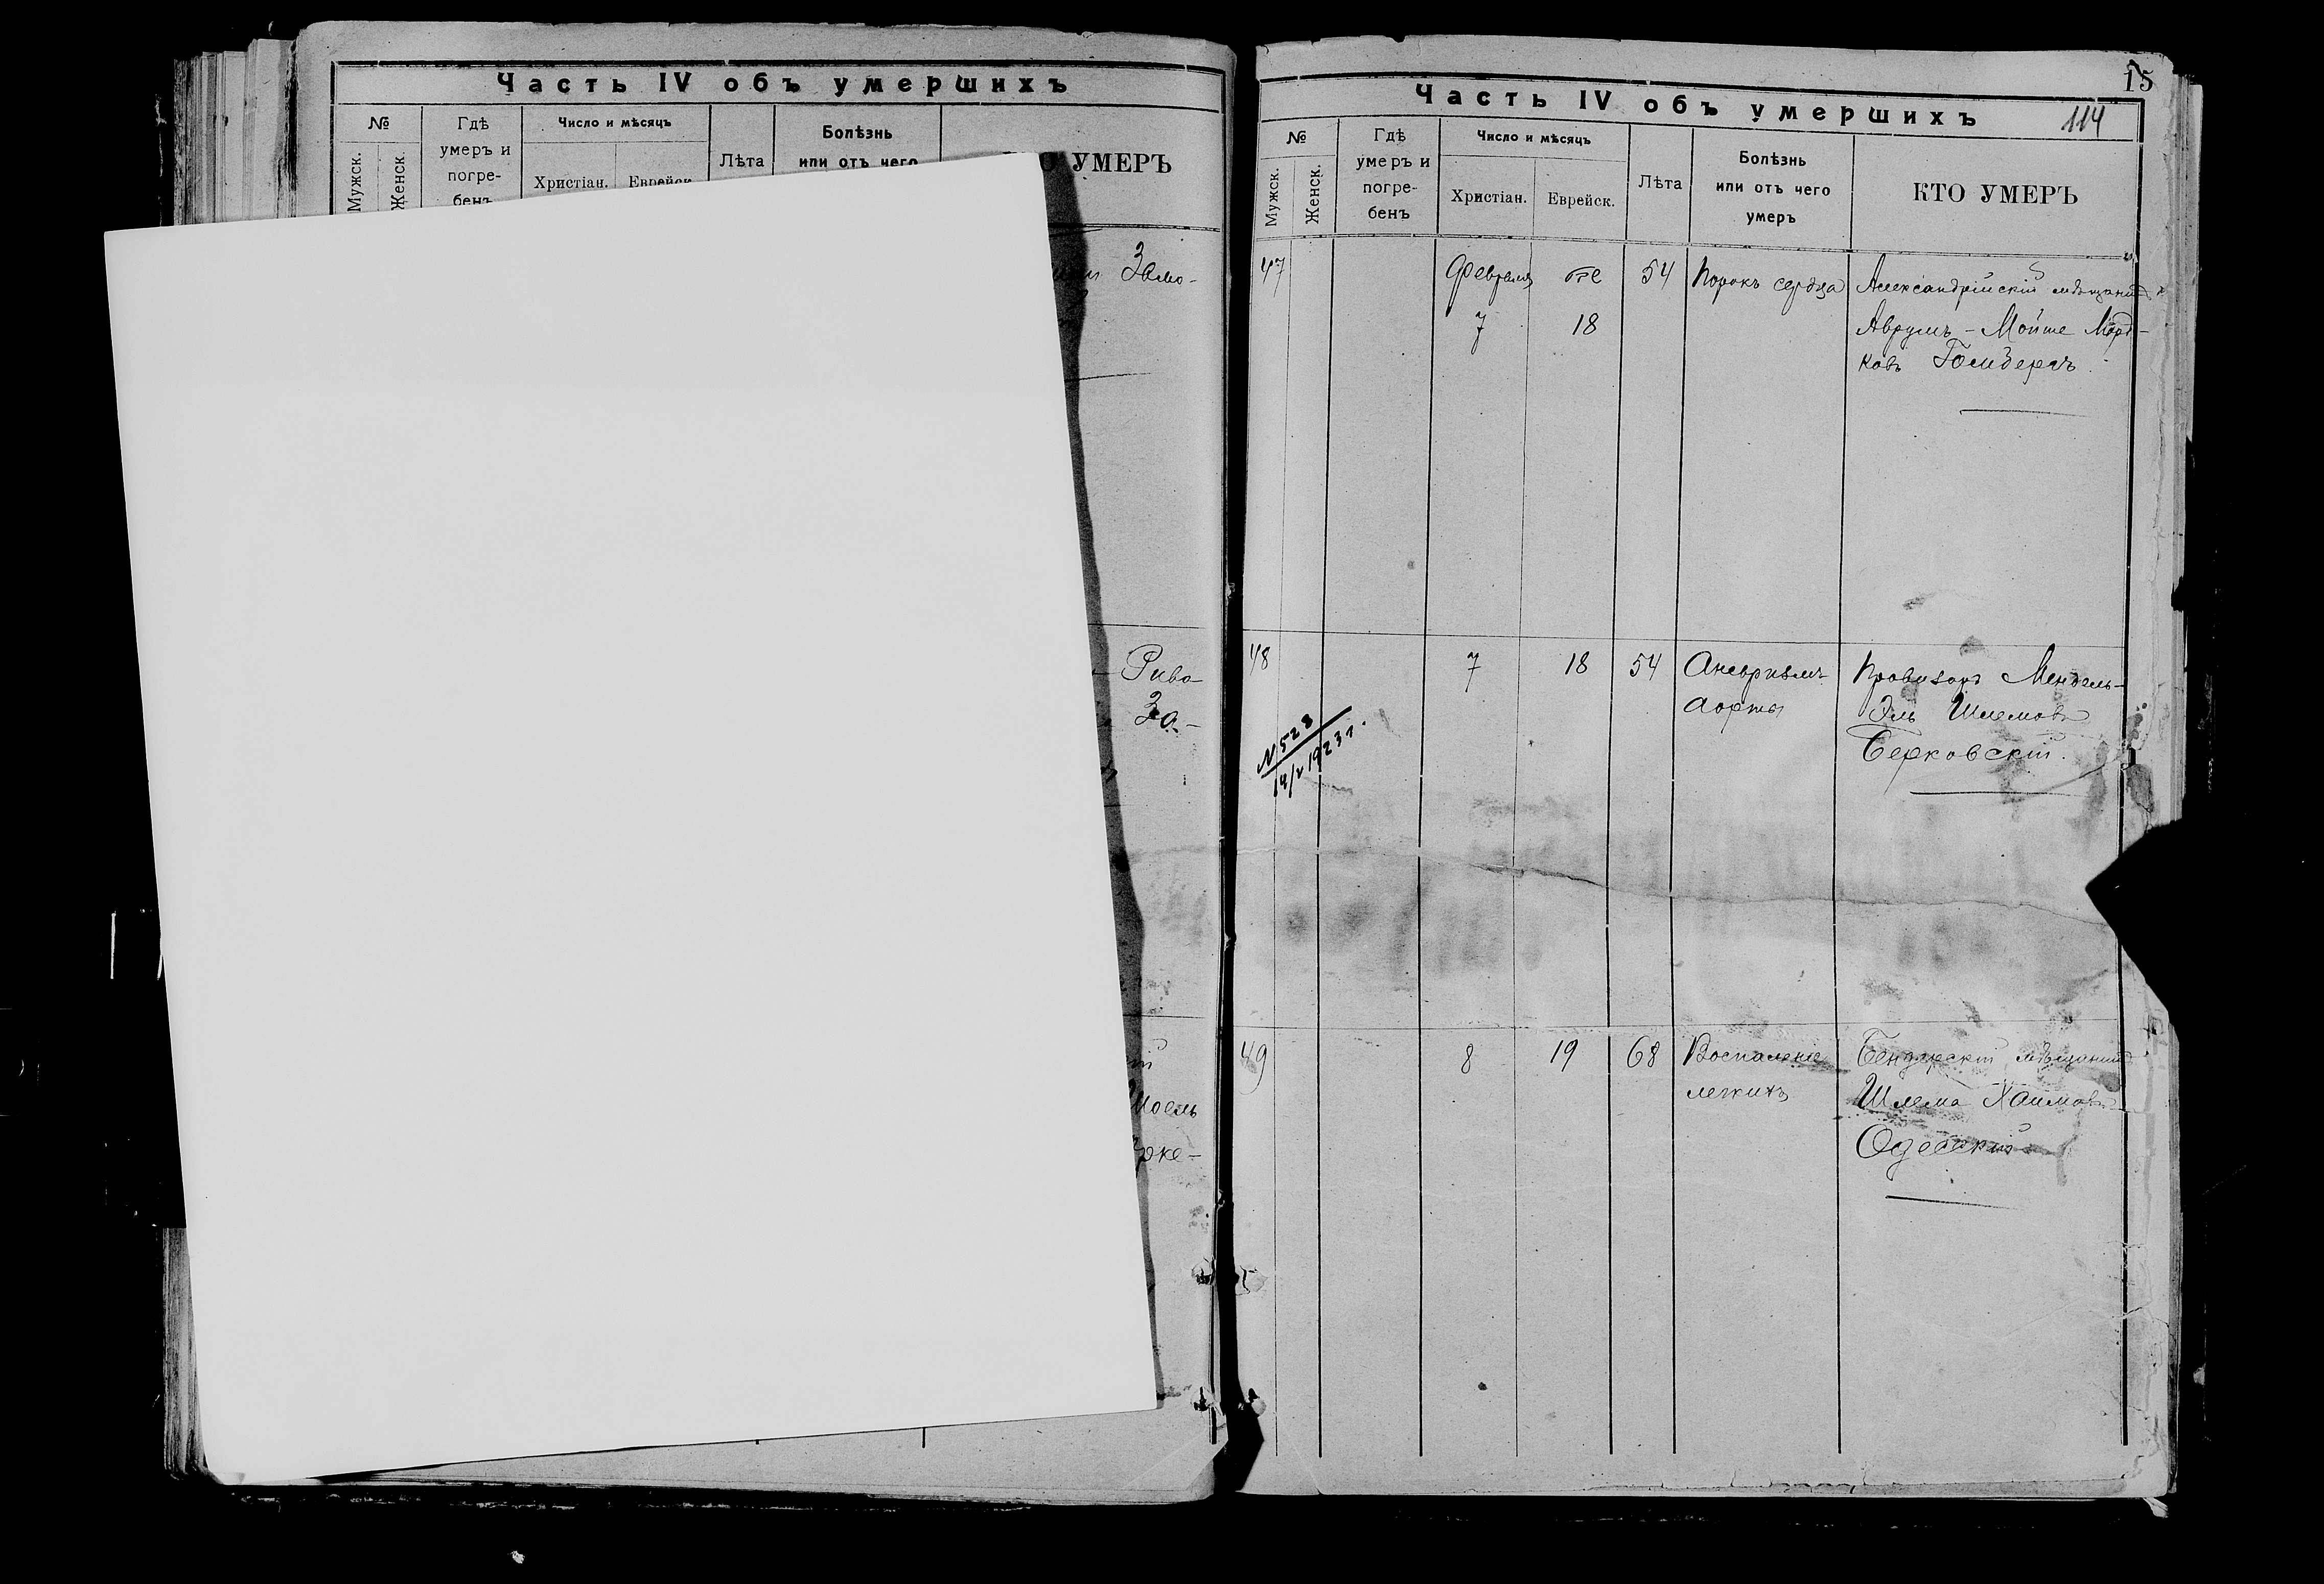 Часть IV объ умершихъ
№
Мужск.
Женск.
Гдѣ
умеръ и
погре-
бенъ
Число и мѣсяцъ
Христіан.
Лѣта
Болѣзнь
или отъ чего
УМЕРЪ
Рива
За-
15
Часть IV объ умершихъ
114
№
Мужск.
Женск.
Гдѣ
умеръ и
погре-
бенъ
Число и мѣсяцъ
Христіан.
Еврейск.
Лѣта
Болѣзнь
или отъ чего
умеръ
КТО УМЕРЪ
47
Февраля
7
18
54
Порокъ сердца
Александрійскій мѣщанинъ
Аврумъ-Мойше Морд-
ковъ
48
7
18
54
Аневризмъ
аорты
Провизоръ Мендель-
Эль Шлемовъ
Берковскій.
N 528
1923 г.
49
8
19
68
Воспаленіе
легкихъ
Бендерскій мѣщанинъ
Шлема Хаимовъ
Одесскій